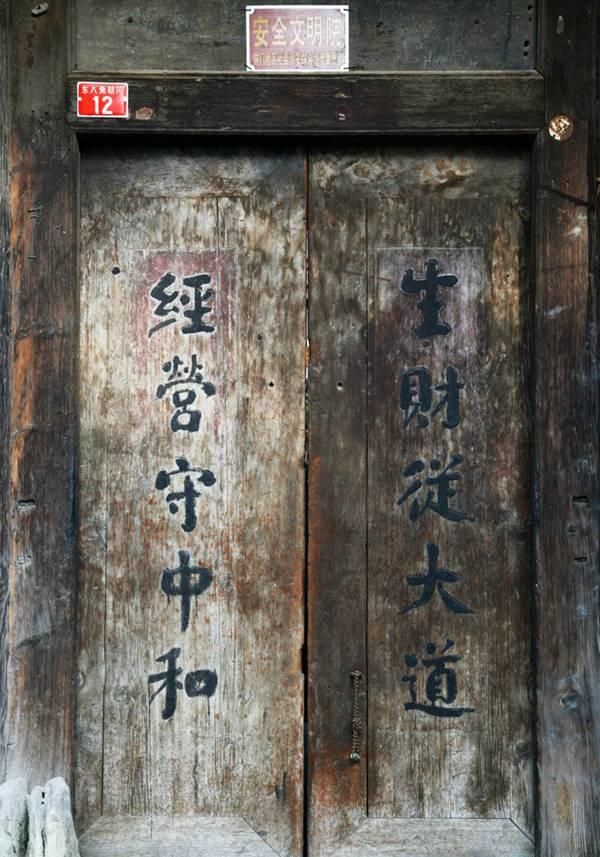 安全文明院
东八角胡同
12
生財從大道
經營守中和